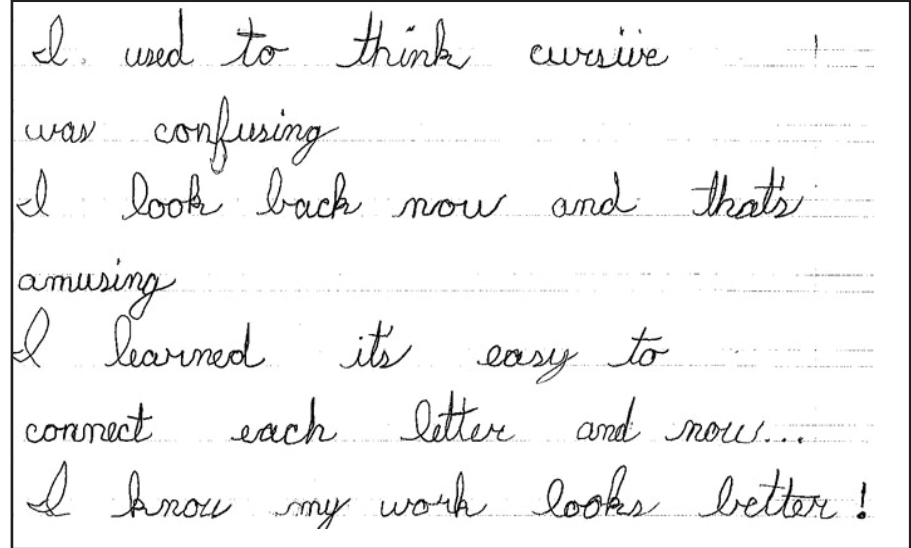 I used to think cursive
was confusing
I look back now and that's
amusing
I learned it's easy to
connect each letter and now...
I know my work looks better!